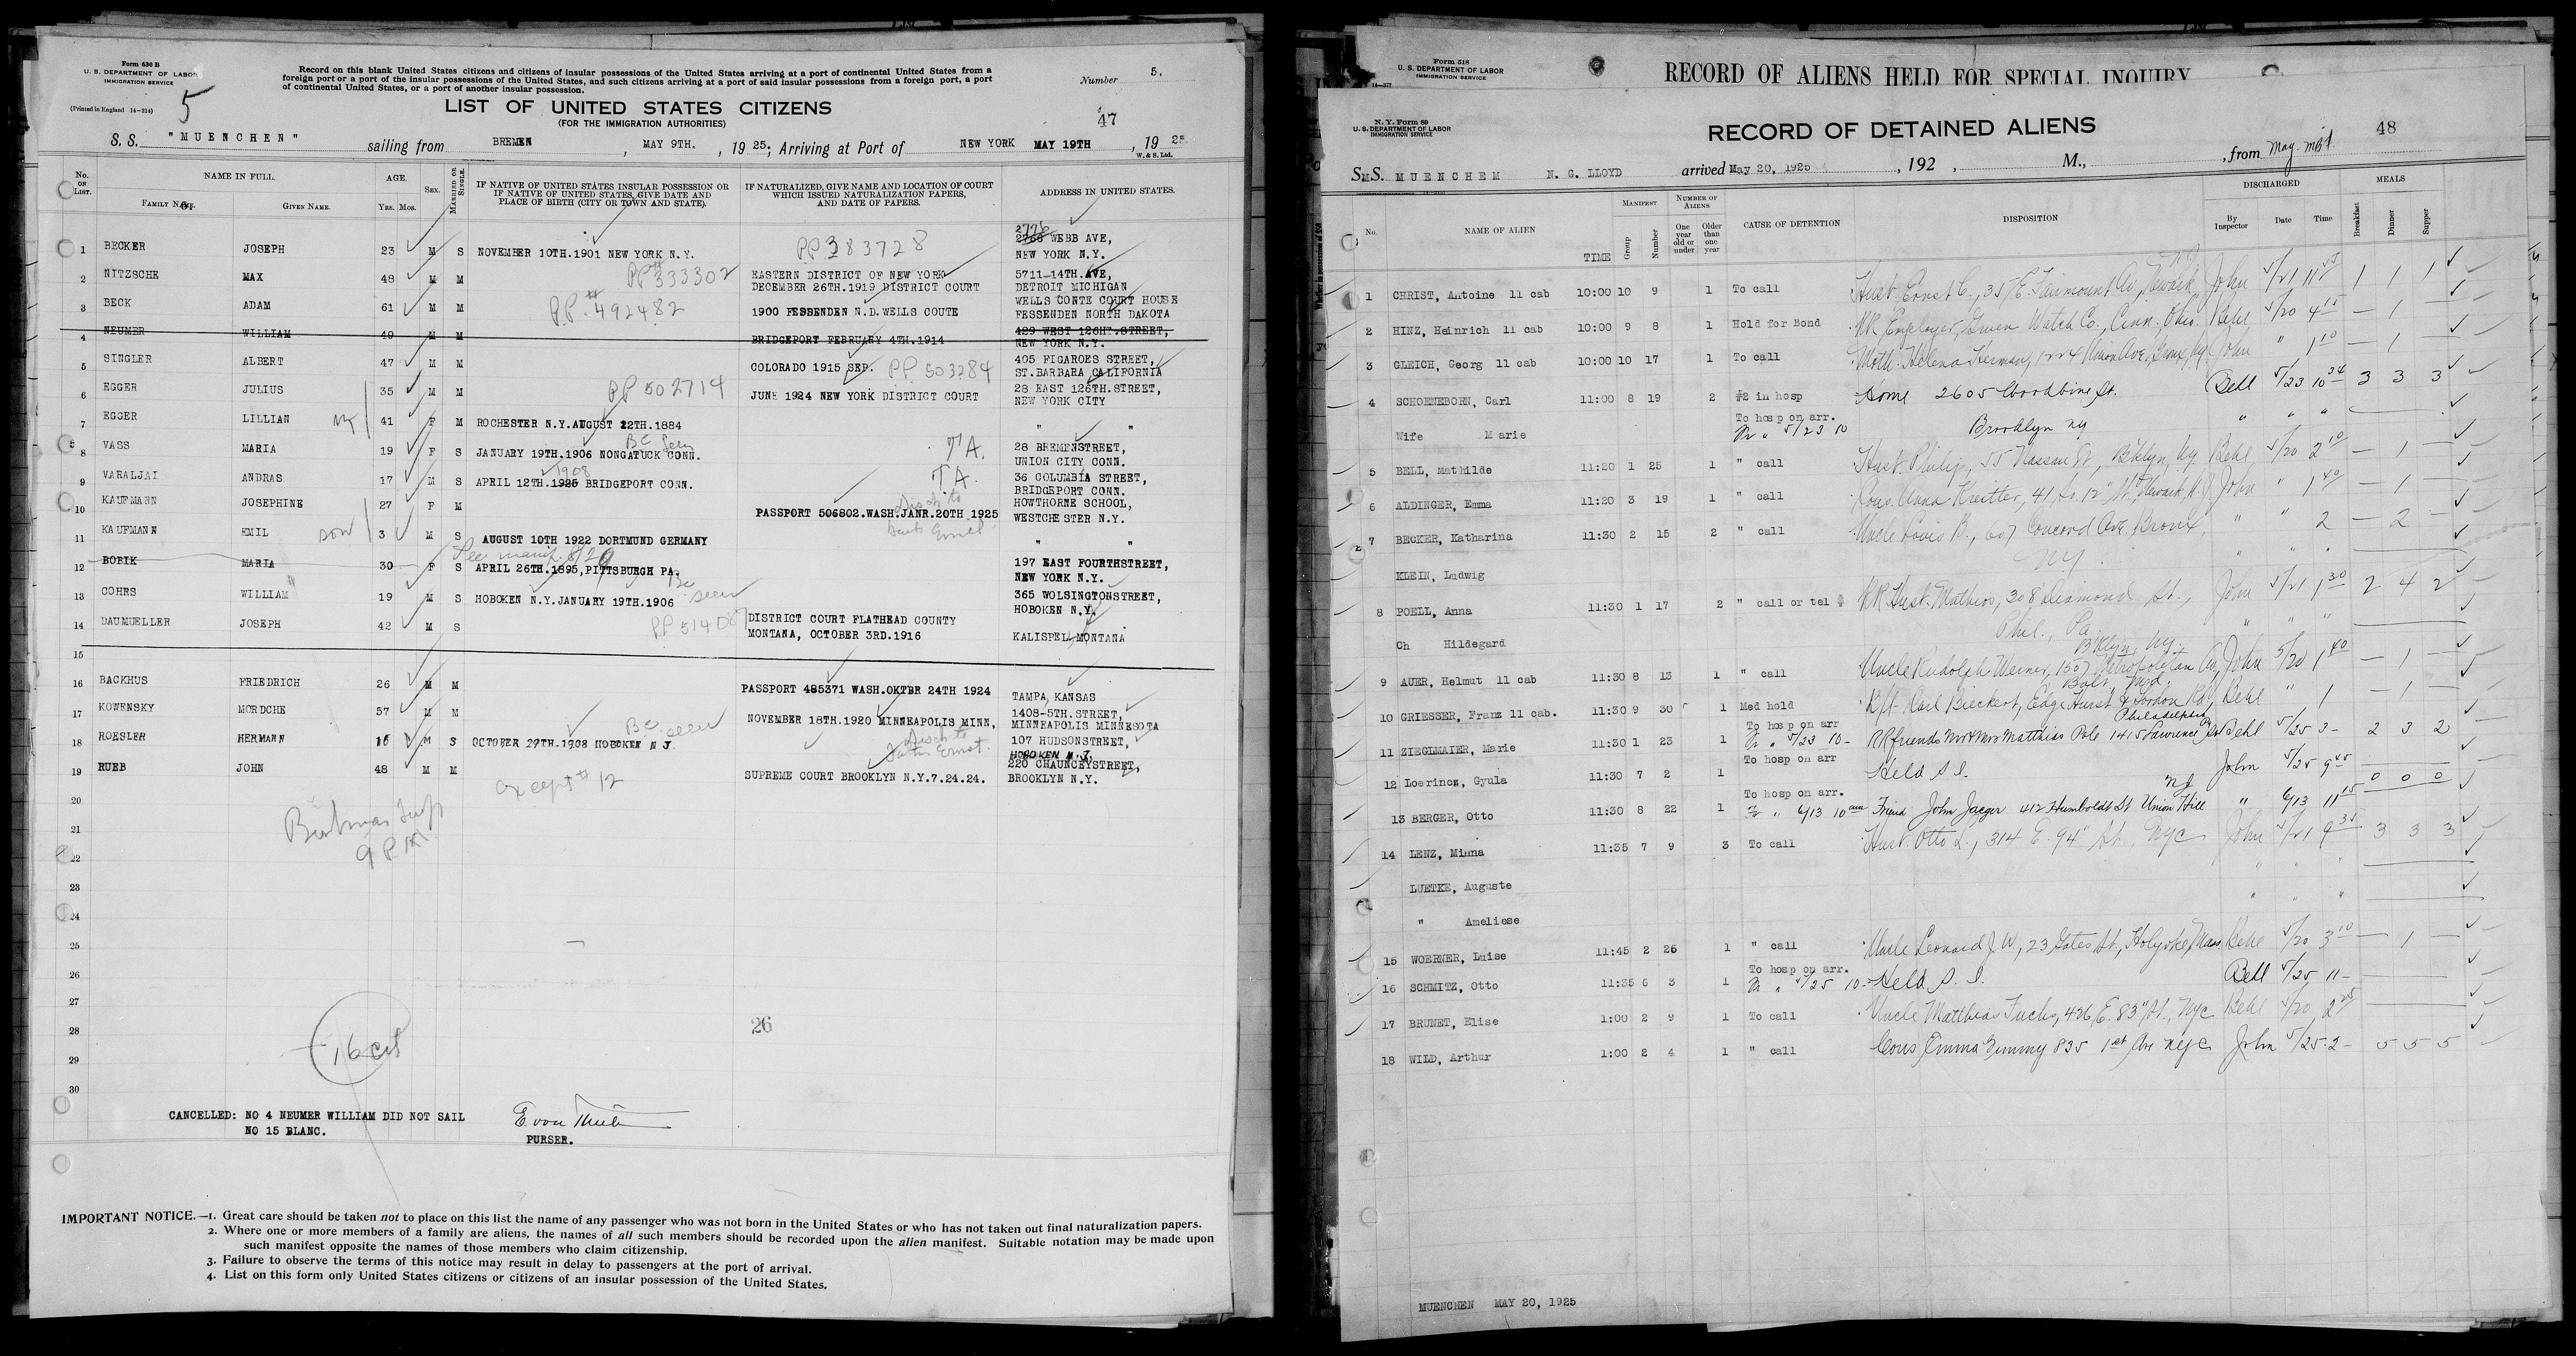 Form 630 B
U. S. DEPARTMENT OF LABOR
IMMIGRATION SERVICE
(Printed in England 14-214)
5
Record on this blank United States citizens and citizens of insular possessions of the United States arriving at a port of continental United States from a
foreign port or a port of the insular possessions of the United States, and such citizens arriving at a port of said insular possessions from a foreign port, a port
of continental United States, or a port of another insular possession.
Number 5.
LIST OF UNITED STATES CITIZENS
(FOR THE IMMIGRATION AUTHORITIES)
47
S. S. "MUENCHEN" sailing from BREMEN, MAY 9TH., 1925; Arriving at Port of NEW YORK MAY 19TH, 1925
W. & S. Ltd.
No. ON LIST. NAME IN FULL. AGE. SEX. MARRIED OR SINGLE. IF NATIVE OF UNITED STATES INSULAR POSSESSION OR IF NATIVE OF UNITED STATES, GIVE DATE AND PLACE OF BIRTH (CITY OR TOWN AND STATE). IF NATURALIZED, GIVE NAME AND LOCATION OF COURT WHICH ISSUED NATURALIZATION PAPERS, AND DATE OF PAPERS. ADDRESS IN UNITED STATES.
FAMILY NAME. GIVEN NAME. YRS. MOS.
1 BECKER JOSEPH 23 M S NOVEMBER 10TH.1901 NEW YORK N.Y. PP 383728 2768 WEBB AVE, NEW YORK N.Y.
2 NITZSCHE MAX 48 M M PP# 333302 EASTERN DISTRICT OF NEW YORK DECEMBER 26TH.1919 DISTRICT COURT 5711-14TH.AVE, DETROIT MICHIGAN
3 BECK ADAM 61 M M P.P.# 492482 1900 FESSENDEN N.D.WELLS COUTE WELLS CONTE COURT HOUSE FESSENDEN NORTH DAKOTA
4 NEUMER WILLIAM 49 M M BRIDGEPORT FEBRUARY 4TH.1914 429 WEST 126HT.STREET, NEW YORK N.Y.
5 SINGLER ALBERT 47 M M COLORADO 1915 SEP. PP. 503284 405 FIGAROES STREET, ST.BARBARA CALIFORNIA
6 EGGER JULIUS 35 M M PP 502714 JUNE 1924 NEW YORK DISTRICT COURT 28 EAST 126TH.STREET, NEW YORK CITY
7 EGGER LILLIAN 41 F M ROCHESTER N.Y.AUGUST 22TH.1884 " "
8 VASS MARIA 19 F S JANUARY 19TH.1906 NONGATUCK CONN. BC seen T.A. 28 BREMENSTREET, UNION CITY CONN.
9 VARALJAI ANDRAS 17 M S APRIL 12TH.1925 1908 BRIDGEPORT CONN. T.A. 36 COLUMBIA STREET, BRIDGEPORT CONN.
10 KAUFMANN JOSEPHINE 27 F M PASSPORT 506802.WASH.JANR.20TH 1925 HOWTHORNE SCHOOL, WESTCHESTER N.Y.
11 KAUFMANN EMIL son 3 M S AUGUST 10TH 1922 DORTMUND GERMANY " "
12 BOBIK MARIA 30 F S APRIL 26TH.1895,PITTSBURGH PA. See manif. 8/29 197 EAST FOURTHSTREET, NEW YORK N.Y.
13 COHRS WILLIAM 19 M S HOBOKEN N.Y.JANUARY 19TH.1906 Bc seen 365 WOLSINGTONSTREET, HOBOKEN N.Y.
14 DAUMUELLER JOSEPH 42 M S DISTRICT COURT FLATHEAD COUNTY MONTANA, OCTOBER 3RD.1916 KALISPEL,MONTANA
15
16 BACKHUS FRIEDRICH 26 M M PASSPORT 485371 WASH.OKTBR 24TH 1924 TAMPA, KANSAS
17 KOWENSKY MORDCHE 57 M M NOVEMBER 18TH.1920 MINNEAPOLIS MINN, 1408-5TH.STREET, MINNEAPOLIS MINNESOTA
18 ROESLER HERMANN 16 M S OCTOBER 29TH.1908 HOBOKEN N J. BC seen Disch to father Ernst. 107 HUDSONSTREET, HOBOKEN N.J.
19 RUEB JOHN 48 M M SUPREME COURT BROOKLYN N.Y.7.24.24. 220 CHAUNCEYSTREET, BROOKLYN N.Y.
20
except # 12
21
9 P.M.
22
23
24
25
26
27
28
26
29
16 cit
30
CANCELLED: NO 4 NEUMER WILLIAM DID NOT SAIL
NO 15 BLANC.
PURSER.
IMPORTANT NOTICE.—1. Great care should be taken not to place on this list the name of any passenger who was not born in the United States or who has not taken out final naturalization papers.
2. Where one or more members of a family are aliens, the names of all such members should be recorded upon the alien manifest. Suitable notation may be made upon
such manifest opposite the names of those members who claim citizenship.
3. Failure to observe the terms of this notice may result in delay to passengers at the port of arrival.
4. List on this form only United States citizens or citizens of an insular possession of the United States.
Form 518
U. S. DEPARTMENT OF LABOR
IMMIGRATION SERVICE
14-377
RECORD OF ALIENS HELD FOR SPECIAL INQUIRY
N. Y. Form 89
U. S. DEPARTMENT OF LABOR
IMMIGRATION SERVICE
RECORD OF DETAINED ALIENS
48
S.S. MUENCHEM N. G. LLOYD arrived May 20, 1925, 192 , M., , from
No. NAME OF ALIEN TIME MANIFEST Group Number NUMBER OF ALIENS One year old or under Older than one year CAUSE OF DETENTION DISPOSITION DISCHARGED By Inspector Date Time MEALS Breakfast Dinner Supper
1 CHRIST, Antoine 11 cab 10:00 10 9 1 To call Husb. Ernst C., 35 E. Fairmount Av, Newark, N.J. John 5/21 1 1 1
2 HINZ, Heinrich 11 cab 10:00 9 8 1 Hold for Bond RR Employer, Gruen Watch Co., Cinn. Ohio. Behl 5/20 4 15 — 1 —
3 GLEICH, Georg 11 cab 10:00 10 17 1 To call Moth. Helena Herman, 1224 Union Ave, Bronx, Ny. John " 1 10 — 1 —
4 SCHOENEBORN, Carl 11:00 8 19 2 #2 in hosp Home 2605 Woodbine St. Bell 5/23 10 34 3 3 3
Wife Marie To hosp on arr. Fr " 5/23 10 Brooklyn ny " " "
5 BELL, Mathilde 11:20 1 25 1 " call Husb. Philip, 55 Nassau St., Bklyn, Ny. Behl 5/20 2 10 — 1 —
6 ALDINGER, Emma 11:20 3 19 1 " call Cous. Anna Kreitter, 41 So. 12" St. Newark, N.J. John " 1 40 — 1 —
7 BECKER, Katharina 11:30 2 15 2 " call Uncle Louis B., 607 Concord Ave, Bronx, " " 2 — 2 —
KLEIN, Ludwig NY. " " "
8 POELL, Anna 11:30 1 17 2 " call or tel $ RR Husb. Mathias, 308 Diamond St., John 5/21 1 30 2 4 2
Ch Hildegard Phil., Pa. " " "
9 AUER, Helmut 11 cab 11:30 8 13 1 " call Uncle Rudolph Werner, 1507 Metropolitan Av, Bklyn, Ny. John 5/20 1 40 — 1 —
10 GRIESSER, Franz 11 cab. 11:30 9 30 1 Med hold Carl Bieckert, Edge Hurst & Gordon Rd, Balt. Md. Behl " 1 — 1 —
11 ZIEGLMAIER, Marie 11:30 1 23 1 To hosp on arr Fr " 5/23 10- RR friends Mr & Mrs Matthias Pole 1415 Lawrence St Philadelphia Behl 5/25 3- 2 3 2
12 Loerincz, Gyula 11:30 7 2 1 To hosp on arr Held S I. John 5/25 9 45
13 BERGER, Otto 11:30 8 22 1 To hosp on arr. Fr " 6/13 10 am Friend John Jaeger 412 Humboldt St Union Hill NJ " 6/13 11 15 0 0 0
14 LENZ, Minna 11:35 7 9 3 To call Husb. Otto L., 314 E. 94" St, NYC John 5/21 9 35 3 3 3
LUETKE, Auguste " " "
" Ameliese " " "
15 WOERNER, Luise 11:45 2 26 1 " call Uncle Leonard J. W, 23 Gates St., Holyoke, Mass Behl 5/20 3 10 — 1 —
16 SCHMITZ, Otto 11:35 6 3 1 To hosp on arr. Fr " 5/25 10- Held S. I. Bell 5/25 11-
17 BRUNET, Elise 1:00 2 9 1 To call Uncle Matthias Fuchs, 426 E. 83" St., NYC Behl 5/20 2 25
18 WILD, Arthur 1:00 2 4 1 " call Cous Emma Zimmy 835 1st Ave nyc John 5/25 2- 5 5 5
MUENCHEN MAY 20, 1925